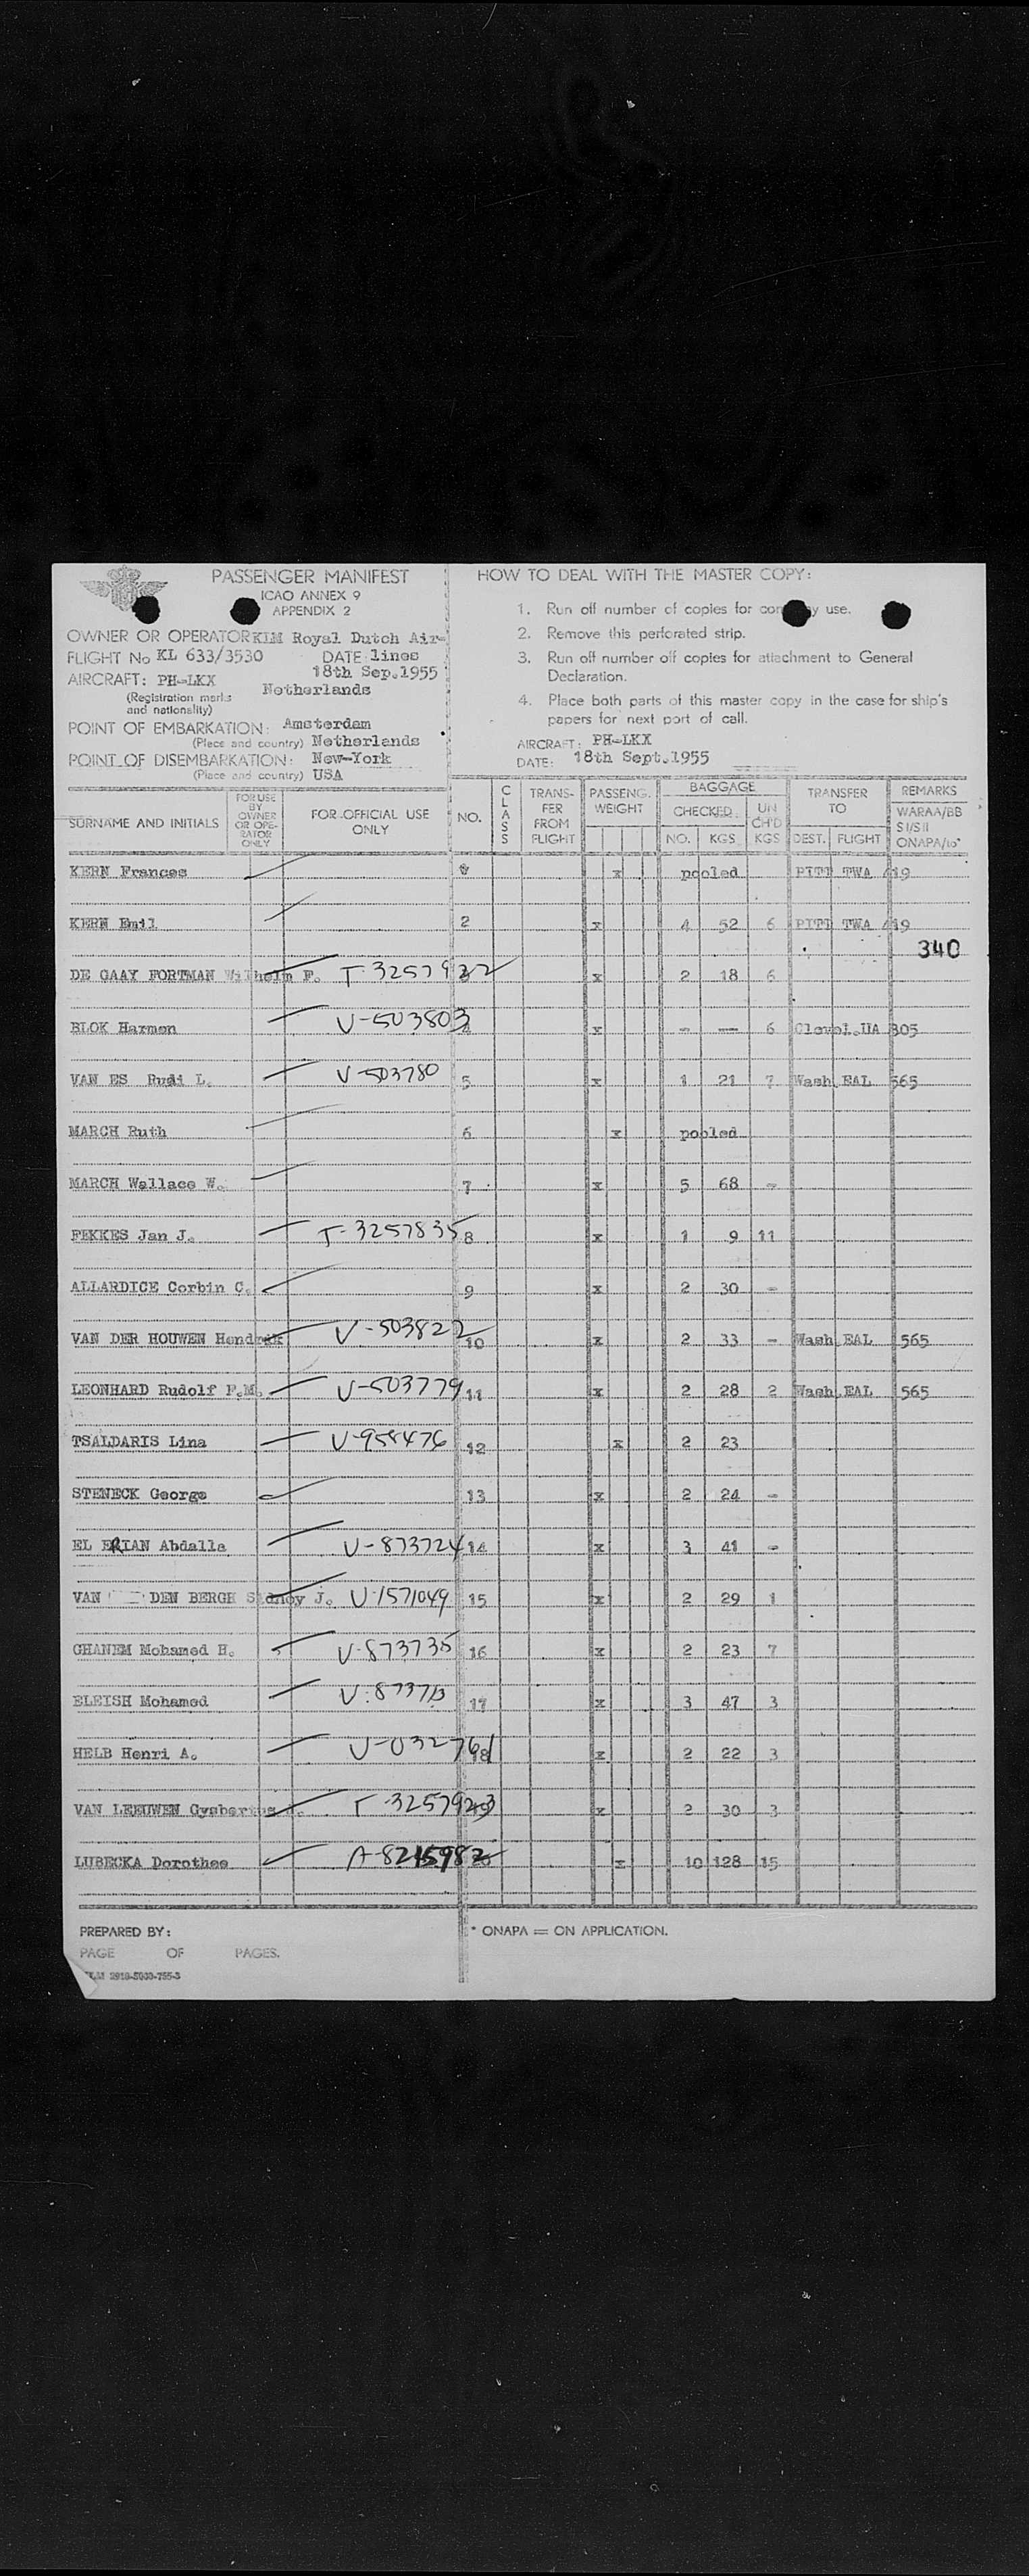 PASSENGER MANIFEST
ICAO ANNEX 9
APPENDIX 2
OWNER OR OPERATOR KLM Royal Dutch Air-
FLIGHT No KL 633/3530 DATE: lines
18th Sep.1955
AIRCRAFT: PH-LKX
(Registration marks and nationality) Netherlands
POINT OF EMBARKATION: Amsterdam
(Place and country) Netherlands
POINT OF DISEMBARKATION: New-York
(Place and country) USA
HOW TO DEAL WITH THE MASTER COPY:
1. Run off number of copies for use.
2. Remove this perforated strip.
3. Run off number off copies for attachment to General
Declaration.
4. Place both parts of this master copy in the case for ship's
papers for next port of call.
AIRCRAFT: PH-LKX
DATE: 18th Sept.1955
SURNAME AND INITIALS FOR USE BY OWNER OR OPE-RATOR ONLY FOR OFFICIAL USE ONLY NO. CLASS TRANS-FER FROM FLIGHT PASSENG. WEIGHT BAGGAGE CHECKED NO. KGS UN CH'D KGS TRANSFER TO DEST. FLIGHT REMARKS WARAA/BB SI/SII ONAPA/to*
KERN Frances x pooled PITT TWA 419
KERN Emil 2 x 4 52 6 PITT TWA 419
340
DE GAAY FORTMAN Wilhelm F. T-3257922 3 x 2 18 6
BLOK Harmen V-503803 4 x - -- 6 Clevel.UA 805
VAN ES Rudi L. V-503780 5 x 1 21 7 Wash EAL 565
MARCH Ruth 6 x pooled
MARCH Wallace W. 7 x 5 68 -
FEKKES Jan J. T-3257835 8 x 1 9 11
ALLARDICE Corbin C. 9 x 2 30 -
VAN DER HOUWEN Hendrik V-503822 10 x 2 33 - Wash EAL 565
LEONHARD Rudolf F.M. V-503779 11 x 2 28 2 Wash EAL 565
TSALDARIS Lina V-958476 12 x 2 23
STENECK George 13 x 2 24 -
EL ERIAN Abdalla V-873724 14 x 3 41 -
VAN DEN BERGH Sidney J. V-1571049 15 x 2 29 1
GHANEM Mohamed H. V-873735 16 x 2 23 7
ELEISH Mohamed V-873713 17 x 3 47 3
HELB Henri A. V-032761 18 x 2 22 3
VAN LEEUWEN Gysbertus T-3257923 19 x 2 30 3
LUBECKA Dorothee A-8215982 20 x 10 128 15
PREPARED BY:
PAGE OF PAGES.
* ONAPA = ON APPLICATION.